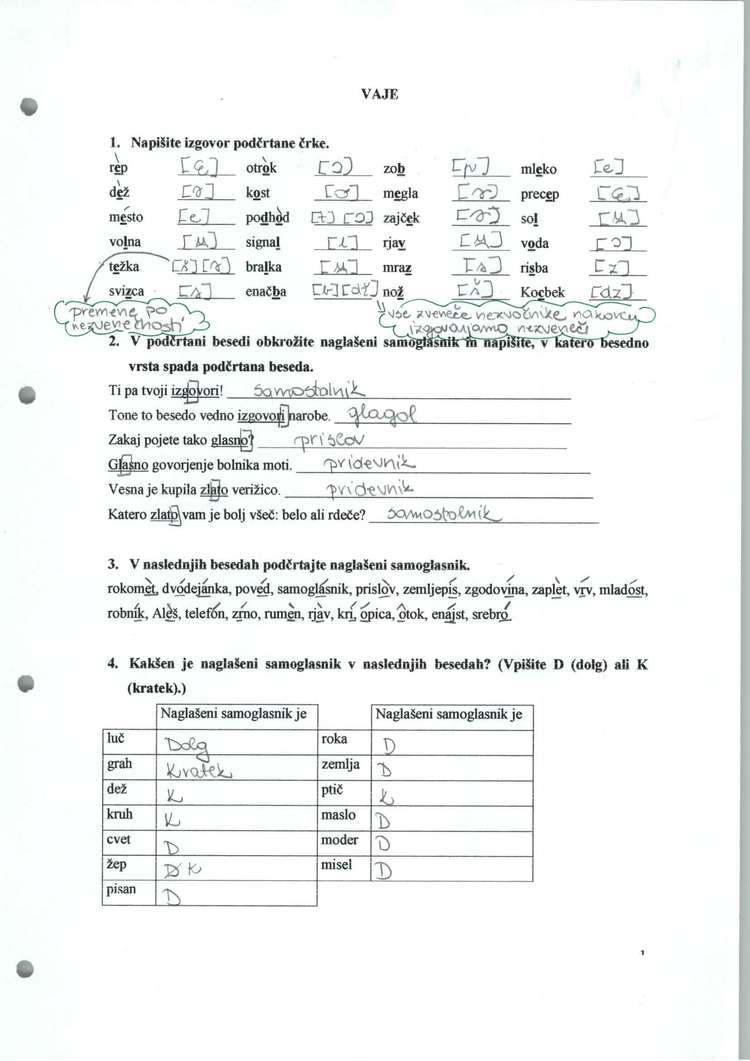 VAJE
1. Napišite izgovor podčrtane črke.
rep [ę] otrok [ɔ] zob [p] mleko [e]
dež [ə] kost [o] megla [ə] precep [ę]
mésto [e] podhòd [t] [ɔ] zajček [ə] sol [u̯]
volna [u̯] signal [l] rjav [u̯] voda [ɔ]
težka [š] [ə] bralka [u̯] mraz [s] risba [z]
svizca [s] enačba nož [š] Kocbek [dz]
premene po nezvenečnosti
vse zveneče nezvočnike na koncu izgovarjamo nezveneči
2. V podčrtani besedi obkrožite naglašeni samoglasnik in napišite, v katero besedno
vrsta spada podčrtana beseda.
Ti pa tvoji izgovori! samostalnik
Tone to besedo vedno izgovori narobe. glagol
Zakaj pojete tako glasno? prislov
Glasno govorjenje bolnika moti. pridevnik
Vesna je kupila zlato verižico. pridevnik
Katero zlato vam je bolj všeč: belo ali rdeče? samostolnik
3. V naslednjih besedah podčrtajte naglašeni samoglasnik.
rokomèt, dvódejánka, povéd, samoglásnik, prislòv, zemljepís, zgodovína, zaplèt, vŕv, mladóst,
robník, Alèš, telefón, zŕno, rumèn, rjàv, krí, ópica, ôtok, enájst, srebró.
4. Kakšen je naglašeni samoglasnik v naslednjih besedah? (Vpišite D (dolg) ali K
(kratek).)
Naglašeni samoglasnik je Naglašeni samoglasnik je
luč Dolg roka D
grah Kratek zemlja D
dež K ptič K
kruh K maslo D
cvet D moder D
žep D K misel D
pisan D
1